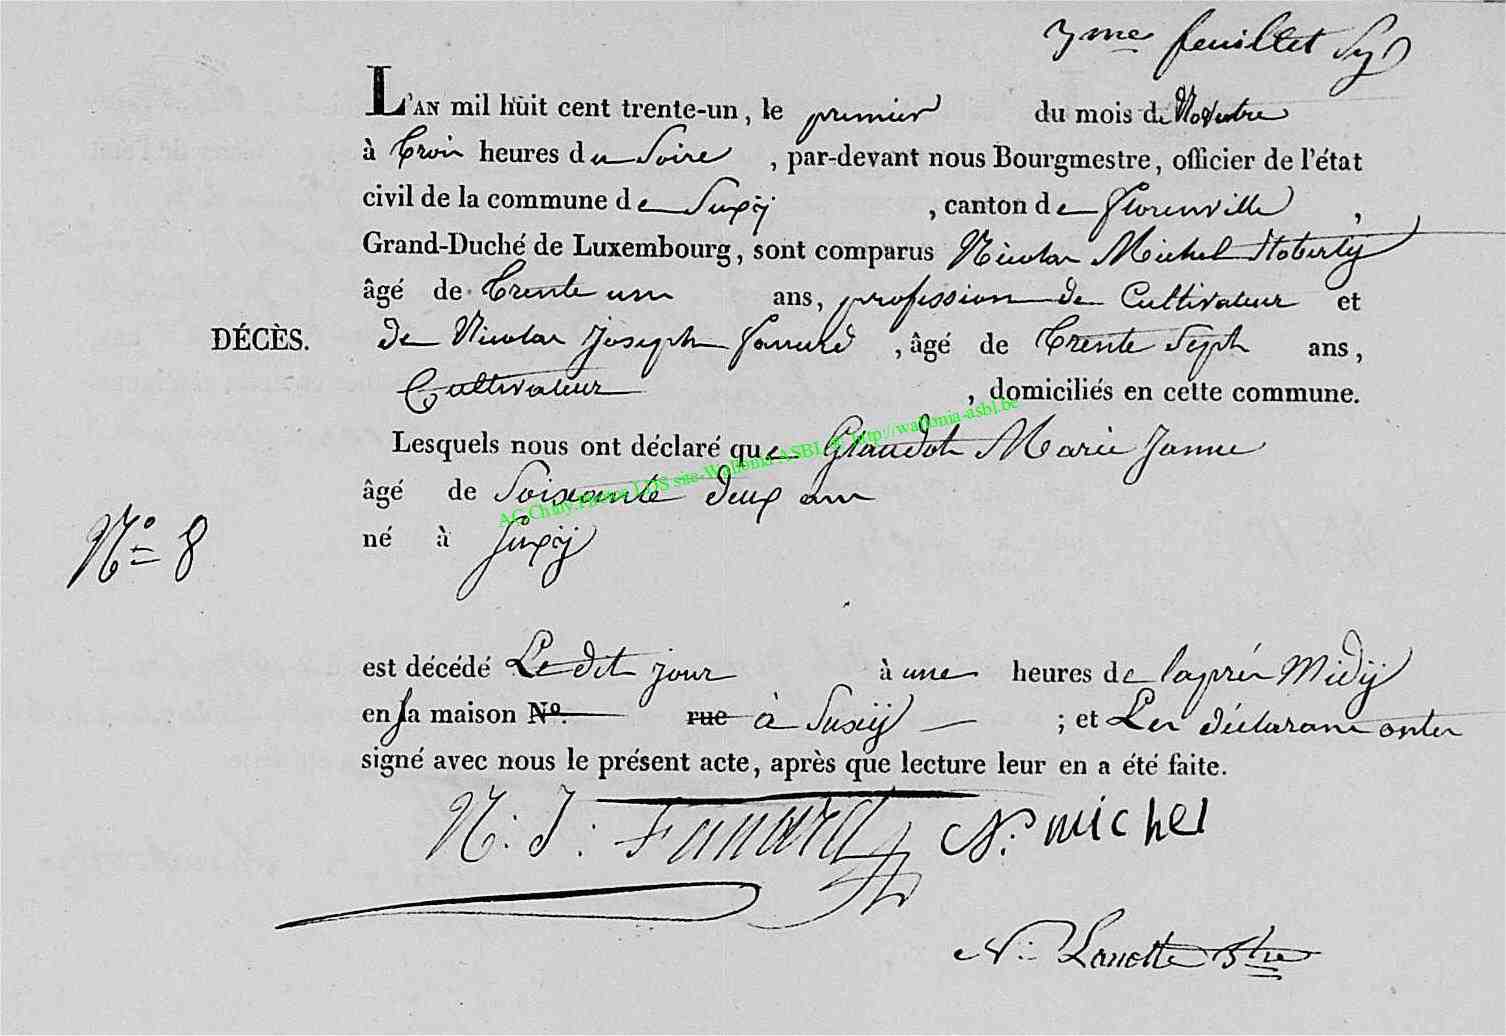 3me feuillet
L'AN mil huit cent trente-un, le premier du mois de Novembre
à trois heures du Soire, par-devant nous Bourgmestre, officier de l'état
civil de la commune de Suxÿ, canton de Florenville,
Grand-Duché de Luxembourg, sont comparus Nicolas Michel
âgé de trente un ans, profession de Cultivateur et
DÉCÈS. de Nicolas Joseph Fanard, âgé de trente Sept ans,
Cultivateur, domiciliés en cette commune.
Lesquels nous ont déclaré que Glaudot Marie Janne
AC Chiny.Photos LDS site-Wallonia ASBL & http://wallonia-asbl.be
âgé de Soixante deux ans
N° 8 né à Suxÿ
est décédé Le dit jour à une heures de l'aprés Midÿ
en sa maison N°. rue à Suxÿ ; et Les déclarans ontes
signé avec nous le présent acte, après que lecture leur en a été faite.
N. J. Fanard N. michel
N. Lanotte Btre